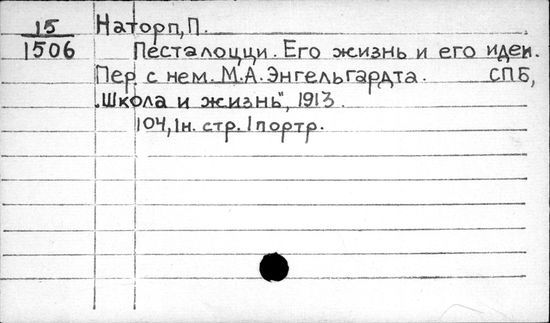 15
1506
Наторп, П.
Песталоцци. Его жизнь и его идеи.
Пер. с нем. М.А. Энгельгардта. СПБ,
„Школа и жизнь", 1913.
104, 1н. стр. 1 портр.